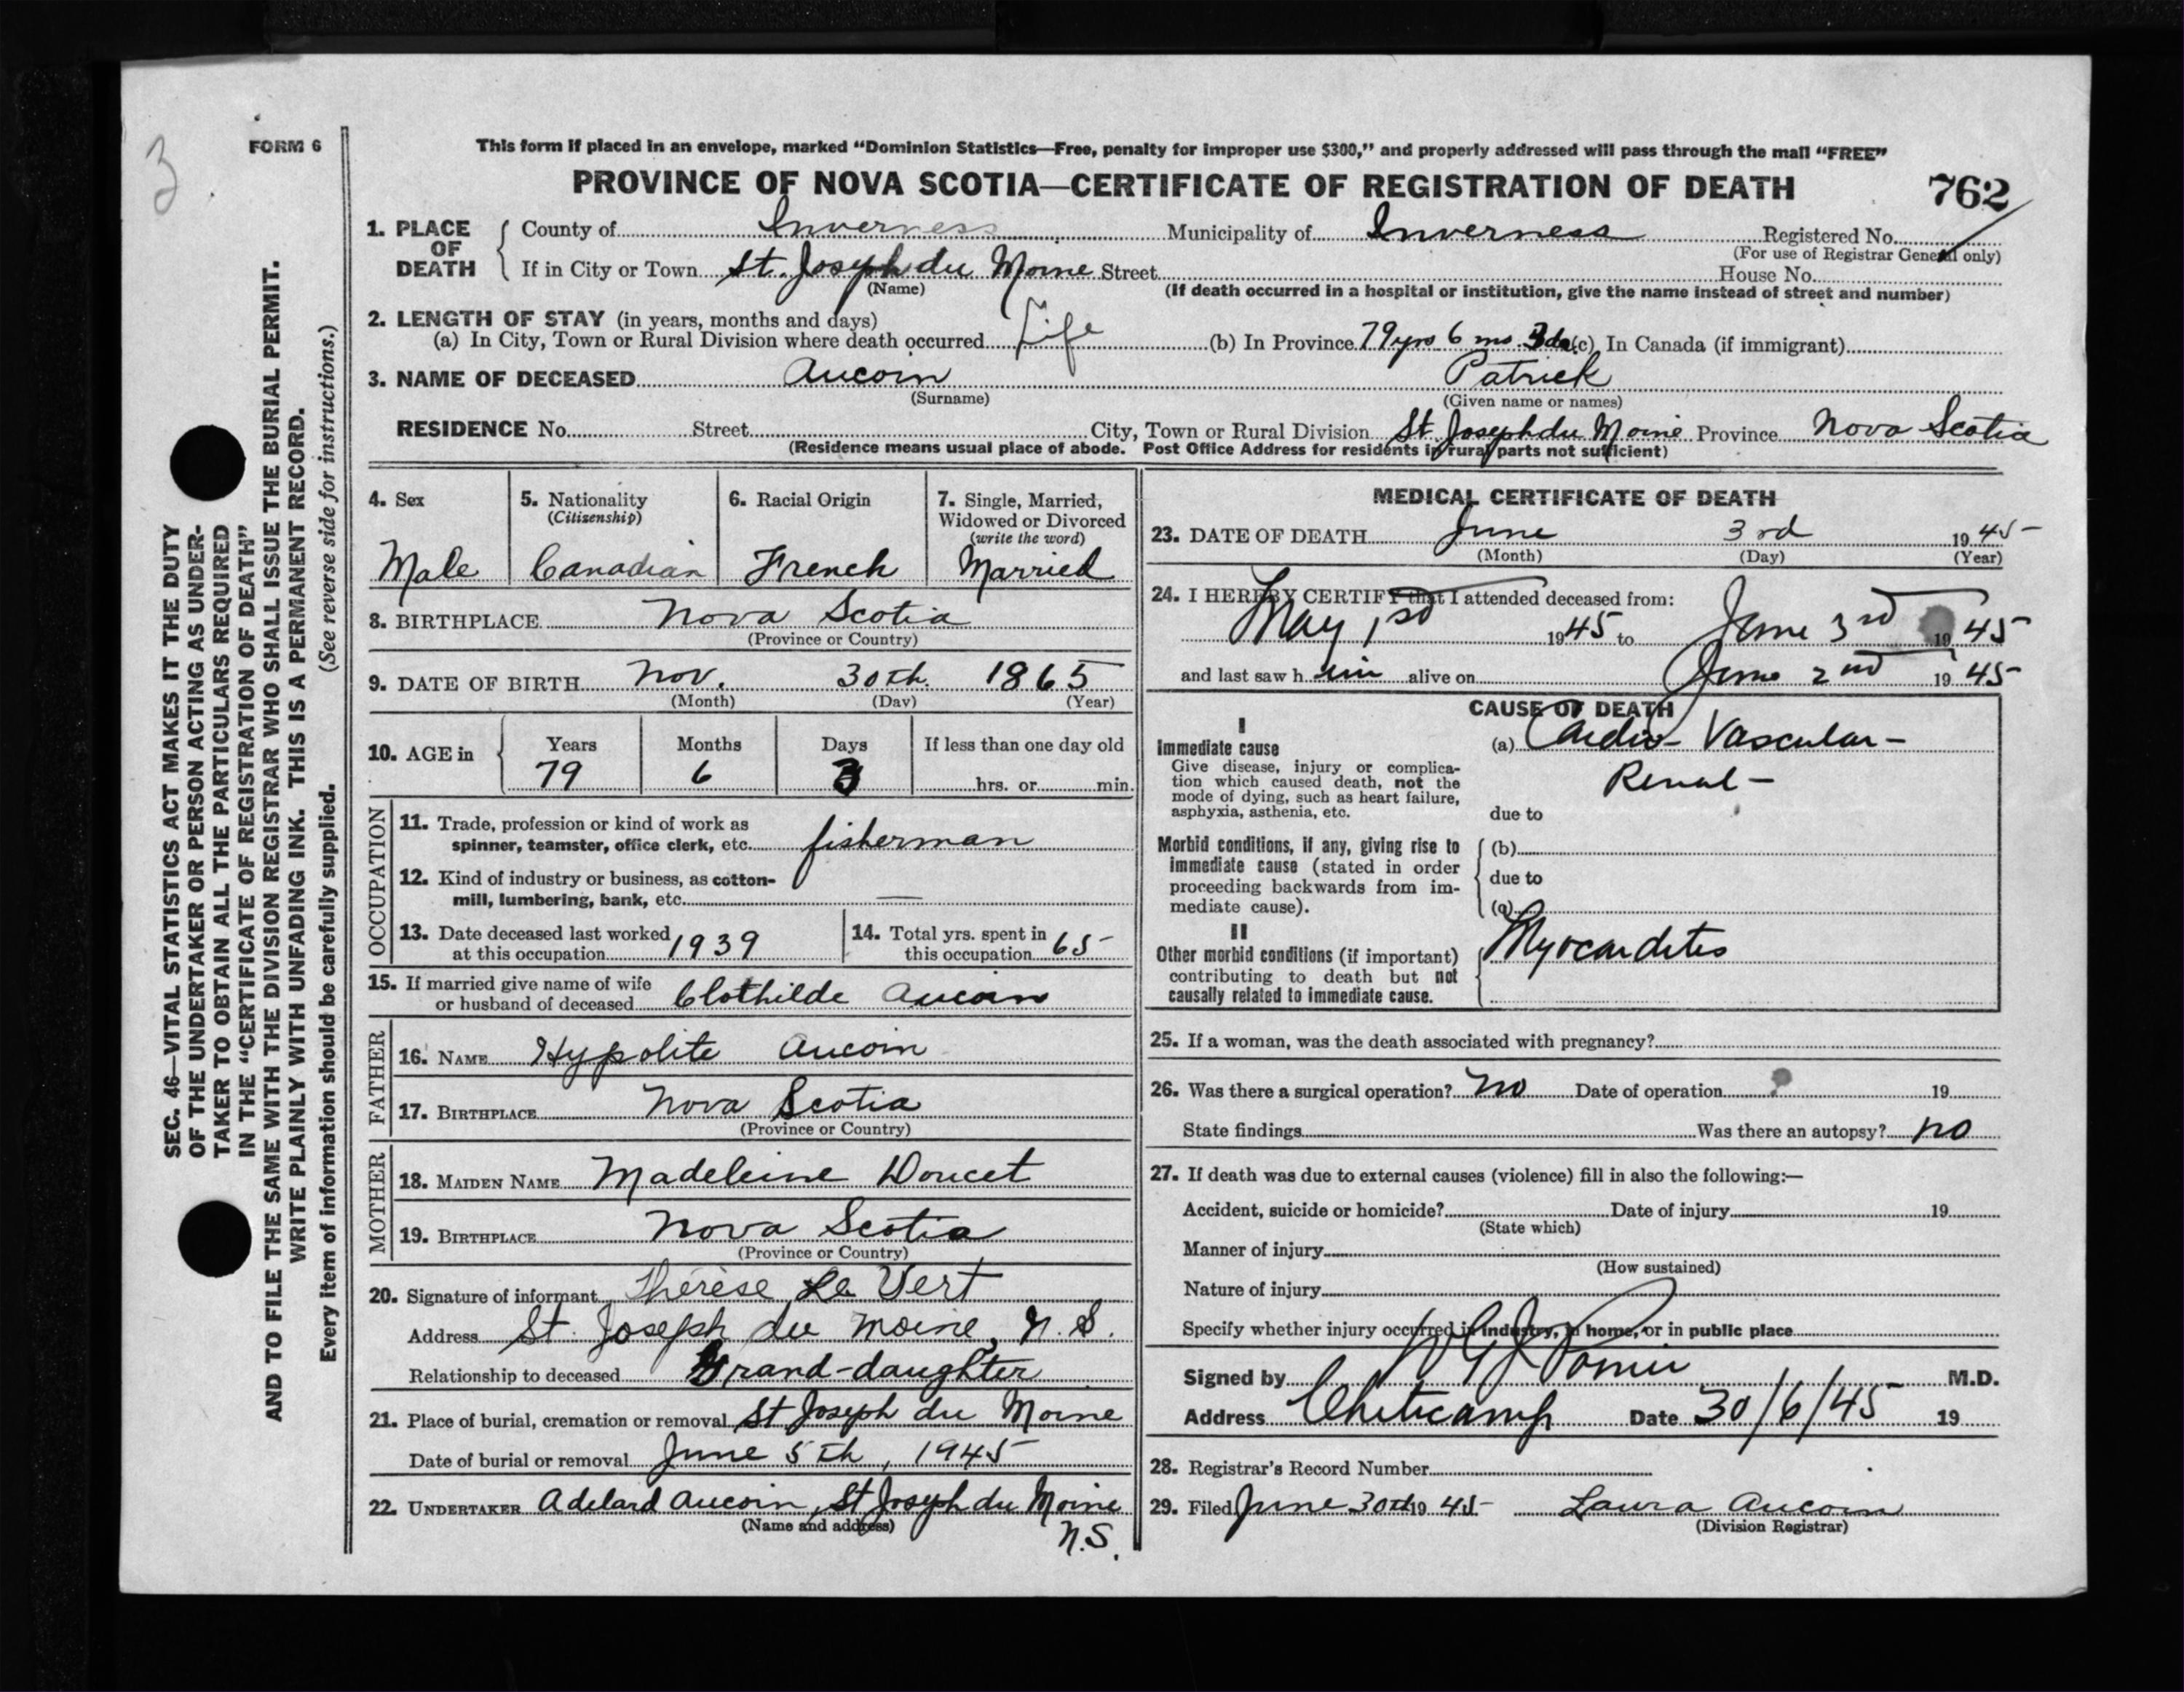 3
FORM 6
This form if placed in an envelope, marked "Dominion Statistics—Free, penalty for improper use $300," and properly addressed will pass through the mail "FREE"
PROVINCE OF NOVA SCOTIA—CERTIFICATE OF REGISTRATION OF DEATH 762
1. PLACE OF DEATH County of Inverness Municipality of Inverness Registered No.
(For use of Registrar General only)
If in City or Town St. Joseph du Moine Street House No.
(Name) (If death occurred in a hospital or institution, give the name instead of street and number)
2. LENGTH OF STAY (in years, months and days)
(a) In City, Town or Rural Division where death occurred Life (b) In Province 79 yrs 6 mo. 3 da (c) In Canada (if immigrant)
3. NAME OF DECEASED Aucoin Patrick
(Surname) (Given name or names)
RESIDENCE No. Street City, Town or Rural Division St. Joseph du Moine Province Nova Scotia
(Residence means usual place of abode. Post Office Address for residents in rural parts not sufficient)
4. Sex 5. Nationality (Citizenship) 6. Racial Origin 7. Single, Married, Widowed or Divorced (write the word)
Male Canadian French Married
8. BIRTHPLACE Nova Scotia
(Province or Country)
9. DATE OF BIRTH Nov. 30th. 1865
(Month) (Day) (Year)
10. AGE in Years Months Days If less than one day old
79 6 3 hrs. or min.
OCCUPATION
11. Trade, profession or kind of work as
spinner, teamster, office clerk, etc. fisherman
12. Kind of industry or business, as cotton-
mill, lumbering, bank, etc. —
13. Date deceased last worked
at this occupation 1939
14. Total yrs. spent in
this occupation 65
15. If married give name of wife
or husband of deceased Clothilde Aucoin
FATHER
16. NAME Hypolite Aucoin
17. BIRTHPLACE Nova Scotia
(Province or Country)
MOTHER
18. MAIDEN NAME Madeleine Doucet
19. BIRTHPLACE Nova Scotia
(Province or Country)
20. Signature of informant Thérèse Le Vert
Address St. Joseph du Moine, N.S.
Relationship to deceased Grand-daughter
21. Place of burial, cremation or removal St Joseph du Moine
Date of burial or removal June 5th, 1945
22. UNDERTAKER Adelard Aucoin, St Joseph du Moine
(Name and address) N.S.
MEDICAL CERTIFICATE OF DEATH
23. DATE OF DEATH June 3rd 1945
(Month) (Day) (Year)
24. I HEREBY CERTIFY that I attended deceased from:
May 1st 1945 to June 3rd 1945
and last saw him alive on June 2nd 1945
CAUSE OF DEATH
I
Immediate cause (a) Cardio-Vascular-
Give disease, injury or complica-
tion which caused death, not the
mode of dying, such as heart failure,
asphyxia, asthenia, etc.
Renal-
due to
Morbid conditions, if any, giving rise to
immediate cause (stated in order
proceeding backwards from im-
mediate cause).
(b)
due to
(c)
II
Other morbid conditions (if important)
contributing to death but not
causally related to immediate cause.
Myocarditis
25. If a woman, was the death associated with pregnancy?
26. Was there a surgical operation? no Date of operation 19
State findings Was there an autopsy? no
27. If death was due to external causes (violence) fill in also the following:—
Accident, suicide or homicide? Date of injury 19
(State which)
Manner of injury
(How sustained)
Nature of injury
Specify whether injury occurred in industry, in home, or in public place
Signed by M.D.
Address Cheticamp Date 30/6/45 19
28. Registrar's Record Number
29. Filed June 30th 1945 Laura Aucoin
(Division Registrar)
SEC. 46—VITAL STATISTICS ACT MAKES IT THE DUTY
OF THE UNDERTAKER OR PERSON ACTING AS UNDER-
TAKER TO OBTAIN ALL THE PARTICULARS REQUIRED
IN THE "CERTIFICATE OF REGISTRATION OF DEATH"
AND TO FILE THE SAME WITH THE DIVISION REGISTRAR WHO SHALL ISSUE THE BURIAL PERMIT.
WRITE PLAINLY WITH UNFADING INK. THIS IS A PERMANENT RECORD.
Every item of information should be carefully supplied. (See reverse side for instructions.)